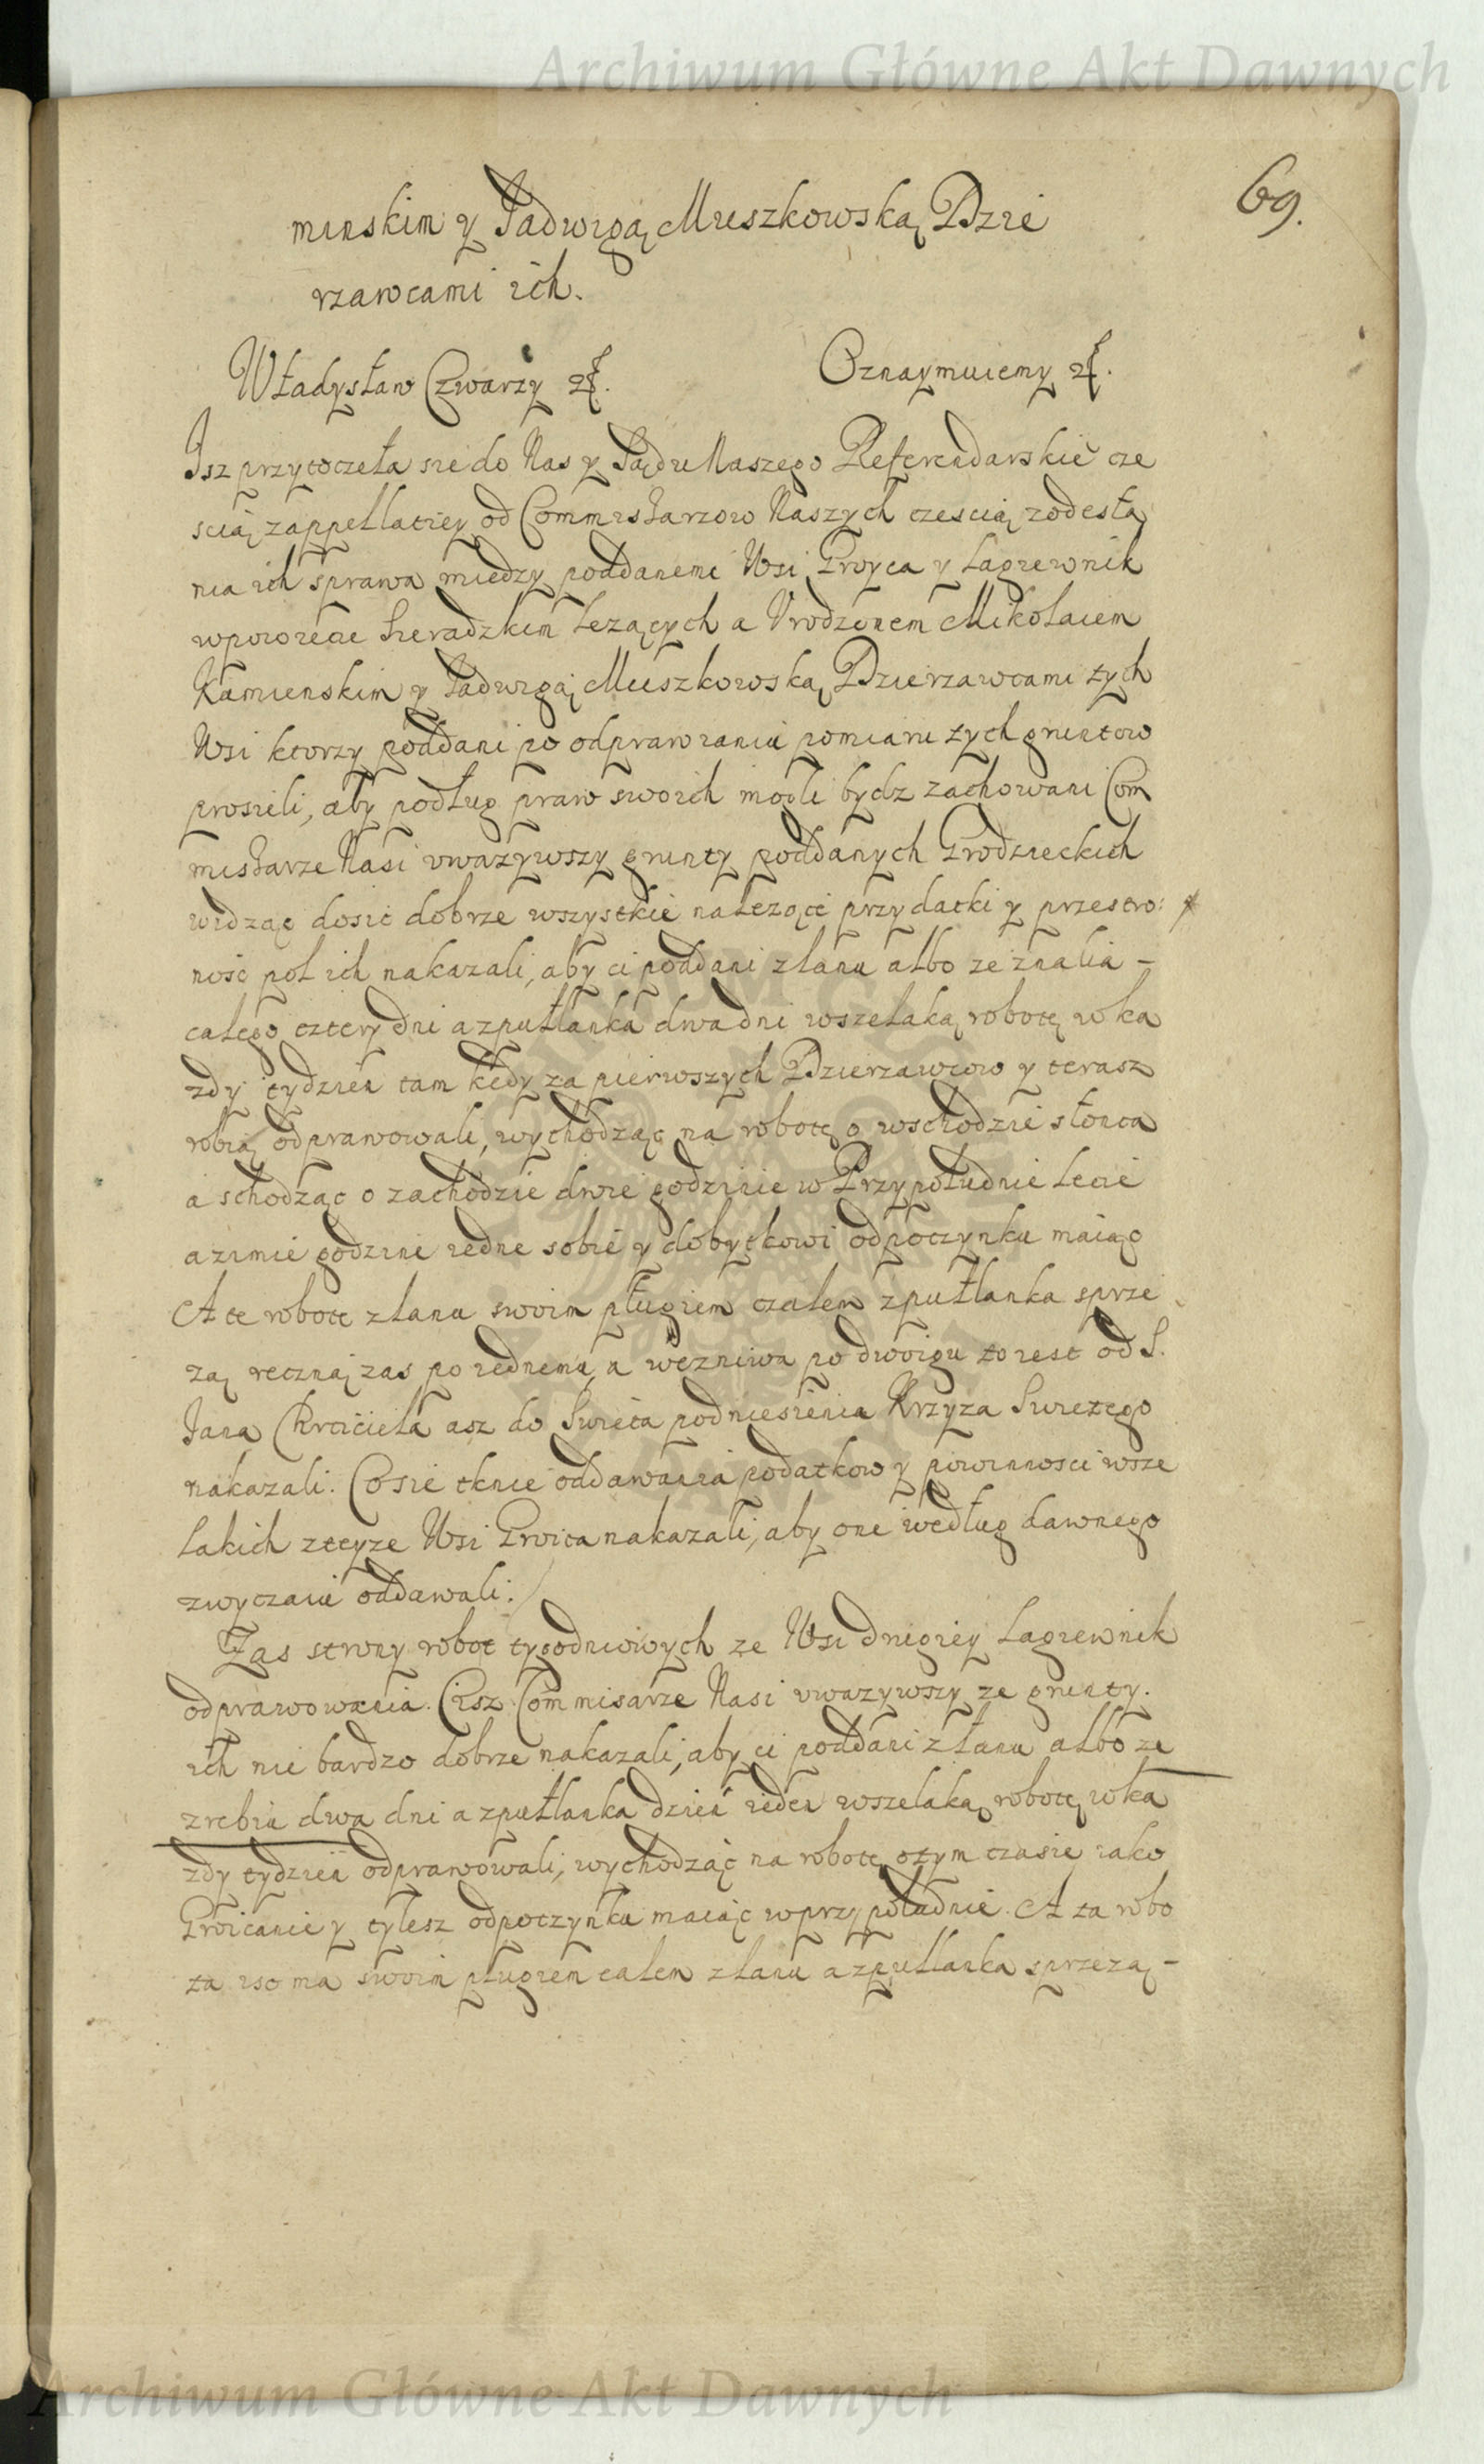 Archiwum Główne Akt Dawnych
69.
minskim y Jadwigą Muszkowską Dzie
rzawcami ich.
Władysław Czwarzy
Oznaymuiemy
Isz przytoczeła sie do Nas y Sądu Naszego Referendarskie cze
scią zappellatiey od Commissarzow Naszych czescią zodesła
nia ich sprawa miedzy poddanemi Wsi Groyca y Lagiewnik
wpowiecie Sieradzkim lezących a Vrodzonem Mikołaiem
Kamienskim y Jadwigą Muszkowską Dzierzawcami tych
Wsi ktorzy poddani po odprawianiu pomiaru tych gruntow
prosieli, aby podług praw swoich mogli bydz zachowani Com
missarze Nasi vwazywszy grunty poddanych Grodzieckich
widząc dosic dobrze wszystkie nalezące przydatki y przestro:
nosc pol ich nakazali, aby ci poddani złanu albo ze znalia -
całego cztery dni a zpułłanka dwa dni wszelaką robotę wka
zdy tydzien tam kedy za pierwszych Dzierzawcow y terasz
robią odprawowali, wychodząc na robotę o wschodzie słonca
a schodząc o zachodzie dwie godzinie w Przypołudnie lecie
a zimie godzine iedne sobie y dobytkowi odpoczynku maiąc
A te robote złanu swoim pługiem czałem zpułłanka sprze
zą reczną zas po iednemu, a wezniwa po dwoigu to iest od S.
Jana Chrzciciela asz do Swieta podniesienia Krzyza Swietego
nakazali. Co sie tknie oddawania podatkow y powinnosci wsze
lakich zteyze Wsi Groica nakazali, aby one według dawnego
zwyczaiu oddawali.
Zas strony robot tygodniowych ze Wsi drugiey Lagiewnik
odprawowania. Cisz Commisarze Nasi vwazywszy ze grunty.
ich nie bardzo dobrze nakazali, aby ci poddani złanu albo ze
zrebiu dwa dni a zpułłanka dzien ieden wszelaką robotę wka
zdy tydzien odprawowali, wychodząc na robotę otym czasie iako
Groicanie y tylesz odpoczynku maiąc wprzypołudnie. A ta robo
ta isc ma swoim pługiem całem złanu a zpułłanka sprzezą -
Archiwum Główne Akt Dawnych